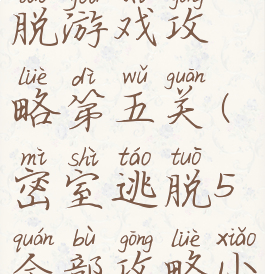 脱游戏攻
lüè dì wǔ guān
略第五关(
mì shì táo tuō
密室逃脱5
quán bù gōng lüè xiǎo
全部攻略小